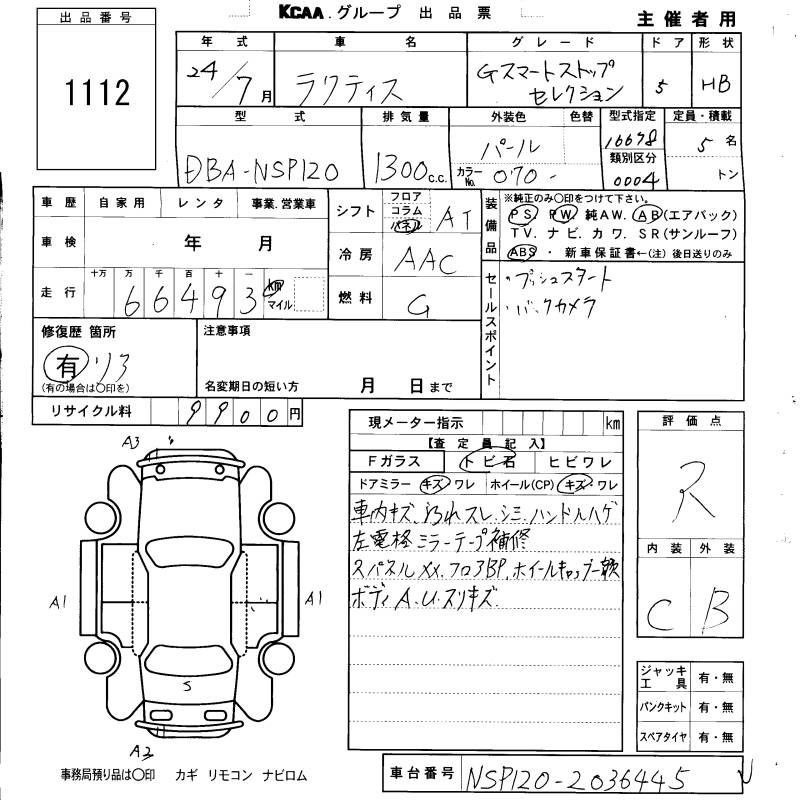 KCAA.グループ 出品票
主催者用
出品番号
1112
年式 車名 グレード ドア 形状
24/7月 ラクティス Gスマートストップ セレクション 5 HB
型式 排気量 外装色 色替 型式指定 定員・積載
DBA-NSP120 1300c.c. パール 16678 5名
カラーNo. 070- 類別区分 0004 トン
車歴 自家用 レンタ 事業.営業車
車検 年 月
走行 十万 万 千 百 十 一
66493 km マイル
シフト フロア コラム パネル AT
冷房 AAC
燃料 G
装備品 ※純正のみ○印をつけて下さい。
PS PW 純AW. AB(エアバック)
TV. ナビ. カワ. SR(サンルーフ)
ABS ・新車保証書←(注)後日送りのみ
セールスポイント
・プッシュスタート
・バックカメラ
修復歴 箇所
有 リア
(有の場合は○印を)
注意事項
名変期日の短い方 月 日まで
リサイクル料 9900円
現メーター指示 km
【査定員記入】
Fガラス トビ石 ヒビワレ
ドアミラー キズ ワレ ホイール(CP) キズ.ワレ
車内キズ.汚れ スレ.シミ.ハンドルハゲ
左電格ミラーテープ補修
スパネルXX.フロアBP.ホイールキャップ一部欠
ボディA.U.スリキズ.
評価点
R
内装 外装
C B
ジャッキ工具 有・無
パンクキット 有・無
スペアタイヤ 有・無
A3
A1
A1
S
A2
事務局預り品は○印 カギ リモコン ナビロム
車台番号 NSP120-2036445